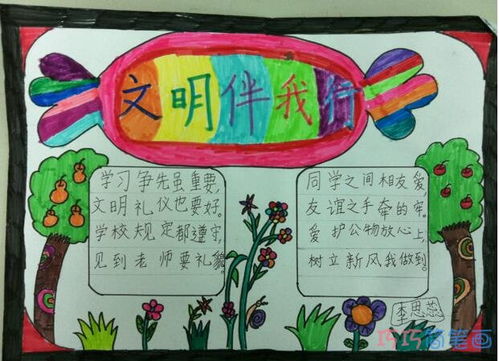 文明伴我行
学习争先虽重要，
文明礼仪也要好。
学校规定都遵守，
见到老师要礼貌
同学之间相友爱，
友谊之手牵的牢。
爱护公物放心上，
树立新风我做到。
李思蕊
巧巧简笔画